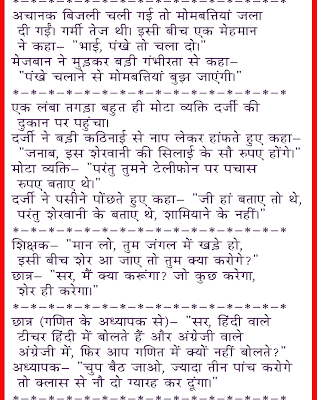 *-*-*-*-*-*-*-*-*-*-*-*-*-*-*-*-*-*
अचानक बिजली चली गई तो मोमबत्तियां जला
दी गईं। गर्मी तेज थी। इसी बीच एक मेहमान
ने कहा- "भाई, पंखे तो चला दो।"
मेजबान ने मुड़कर बड़ी गंभीरता से कहा-
"पंखे चलाने से मोमबत्तियां बुझ जाएंगी।"
*-*-*-*-*-*-*-*-*-*-*-*-*-*-*-*-*-*
एक लंबा तगड़ा बहुत ही मोटा व्यक्ति दर्जी की
दुकान पर पहुंचा।
दर्जी ने बड़ी कठिनाई से नाप लेकर हांफते हुए कहा-
"जनाब, इस शेरवानी की सिलाई के सौ रुपए होंगे।"
मोटा व्यक्ति- "परंतु तुमने टेलीफोन पर पचास
रुपए बताए थे।"
दर्जी ने पसीने पोंछते हुए कहा- "जी हां बताए तो थे,
परंतु शेरवानी के बताए थे, शामियाने के नहीं।"
*-*-*-*-*-*-*-*-*-*-*-*-*-*-*-*-*-*
शिक्षक- "मान लो, तुम जंगल में खड़े हो,
इसी बीच शेर आ जाए तो तुम क्या करोगे?"
छात्र- "सर, मैं क्या करूंगा? जो कुछ करेगा,
शेर ही करेगा।"
*-*-*-*-*-*-*-*-*-*-*-*-*-*-*-*-*-*
छात्र (गणित के अध्यापक से)- "सर, हिंदी वाले
टीचर हिंदी में बोलते हैं और अंग्रेजी वाले
अंग्रेजी में, फिर आप गणित में क्यों नहीं बोलते?"
अध्यापक- "चुप बैठ जाओ, ज्यादा तीन पांच करोगे
तो क्लास से नौ दो ग्यारह कर दूंगा।"
*-*-*-*-*-*-*-*-*-*-*-*-*-*-*-*-*-*